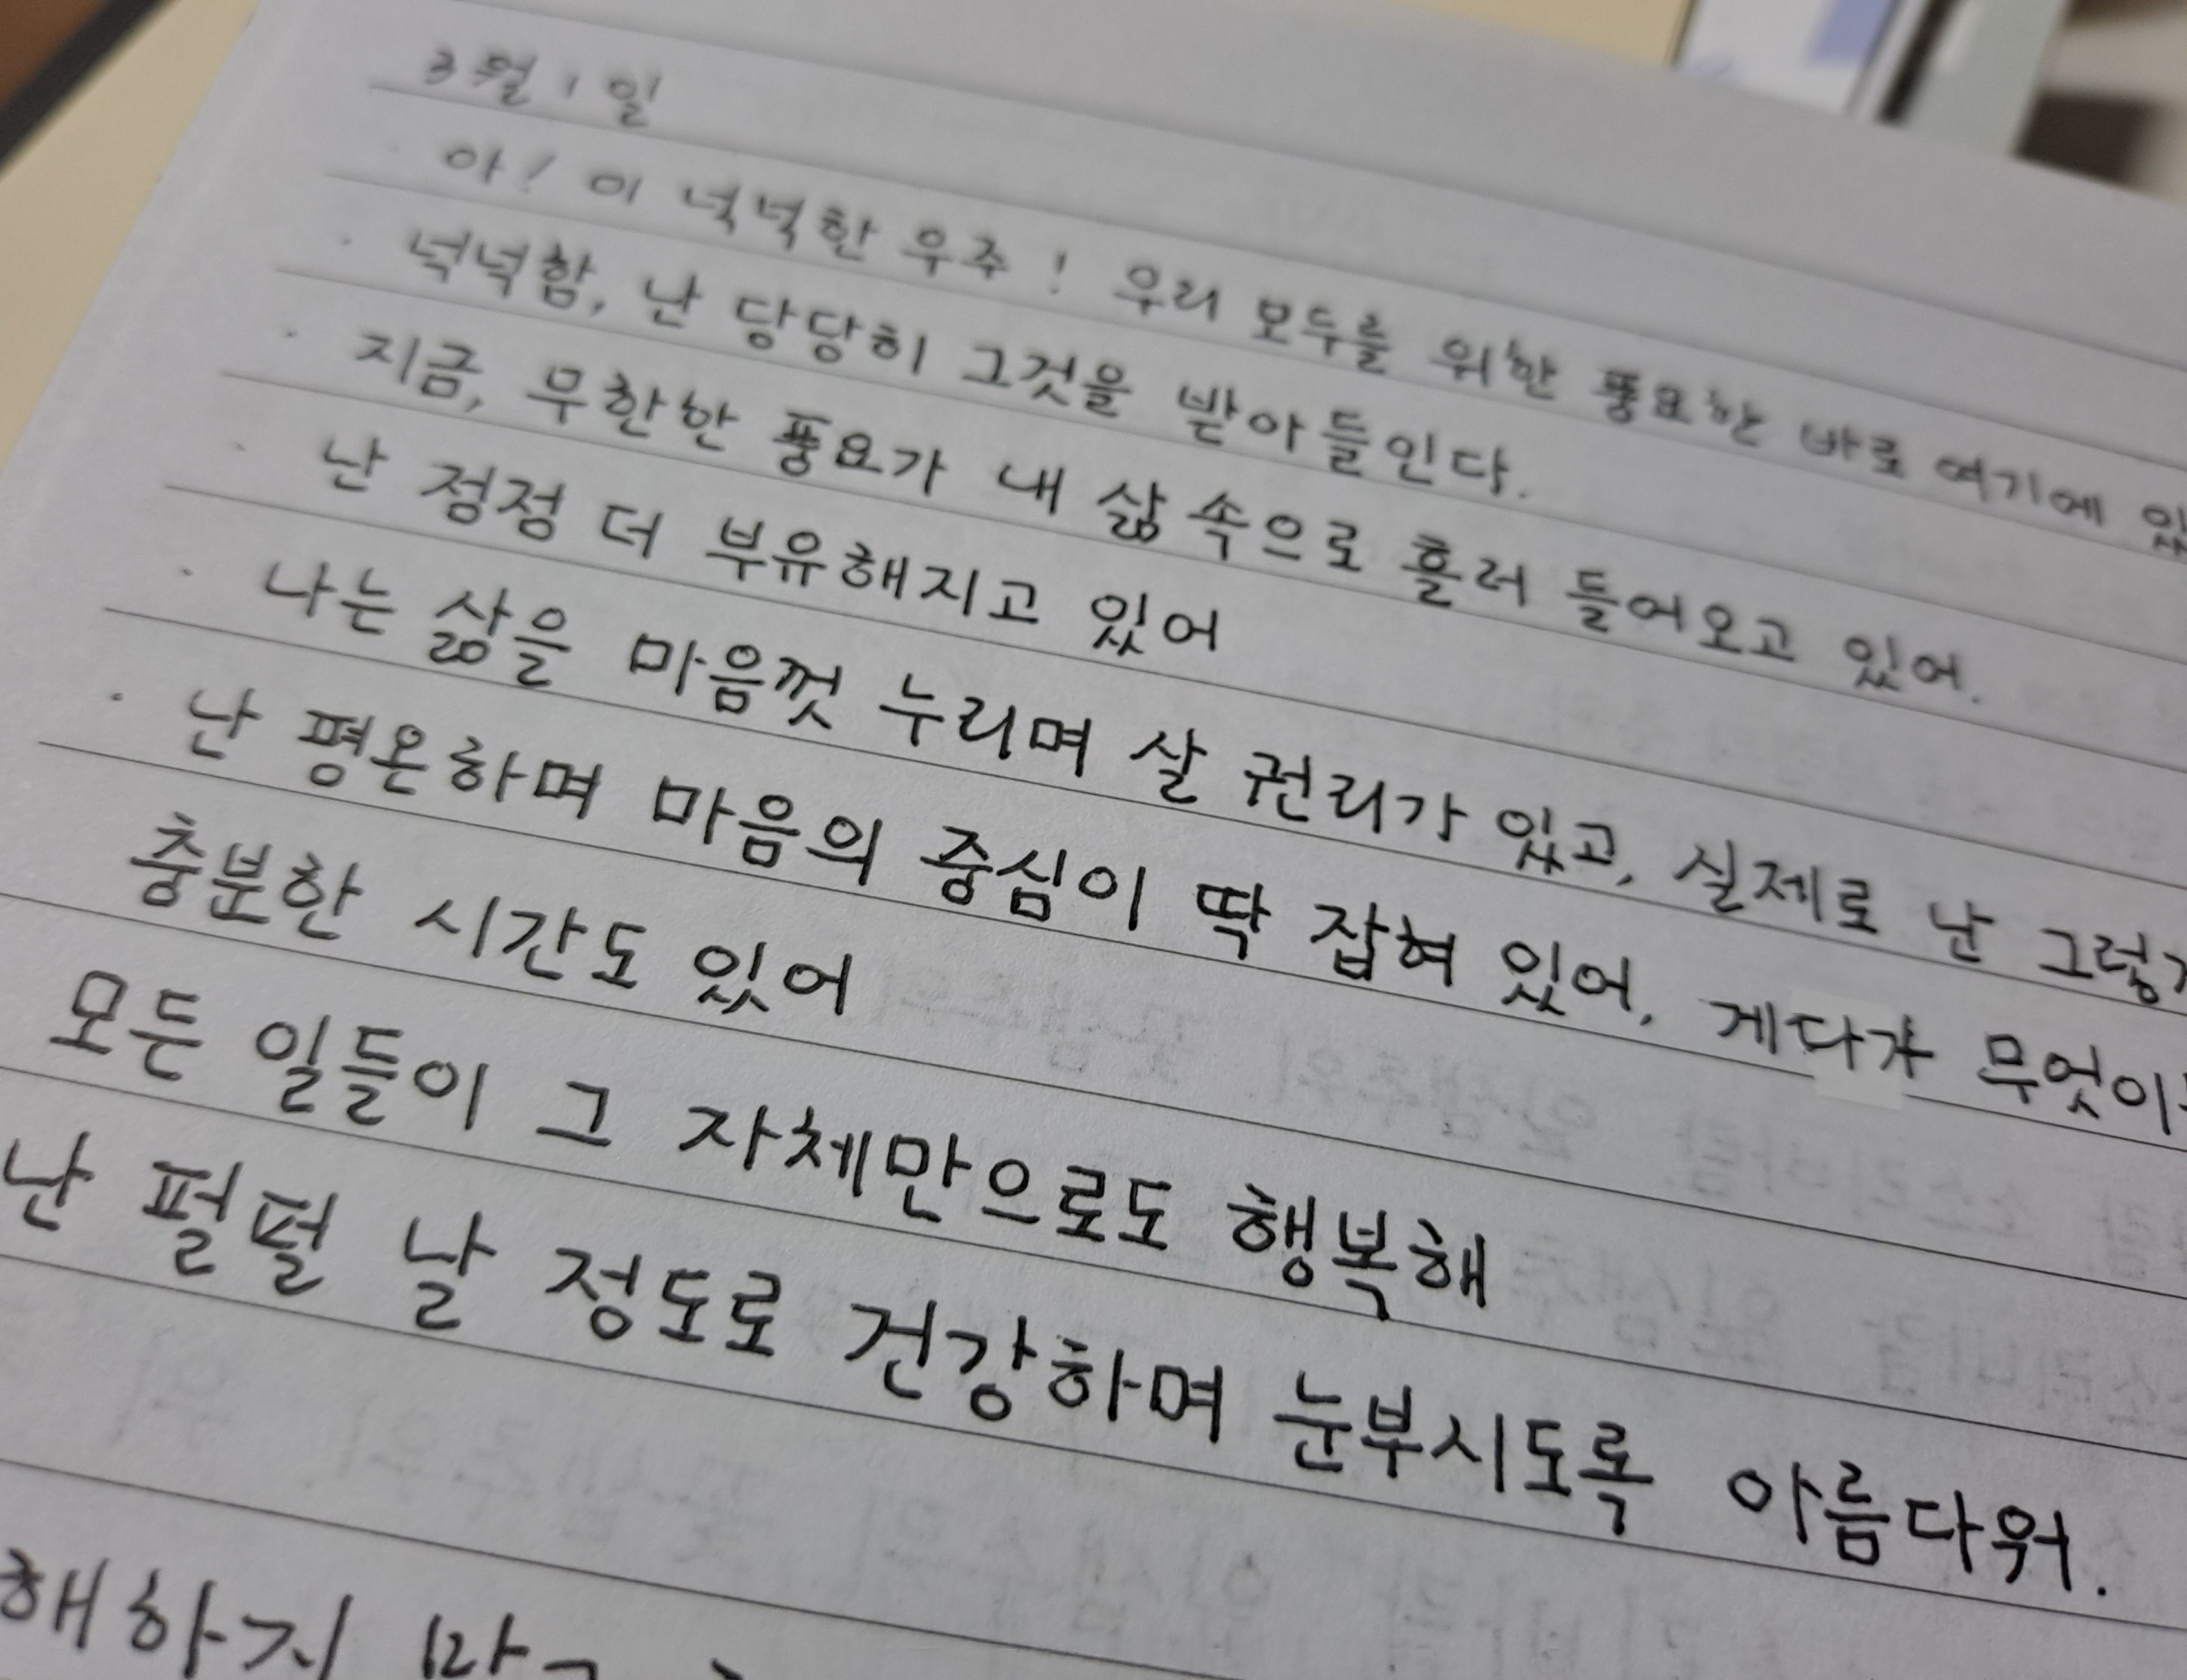 3월 1일
· 아! 이 넉넉한 우주! 우리 모두를 위한 풍요한 바로 여기에
· 넉넉함, 난 당당히 그것을 받아들인다.
· 지금, 무한한 풍요가 내 삶 속으로 흘러 들어오고 있어.
· 난 점점 더 부유해지고 있어
· 나는 삶을 마음껏 누리며 살 권리가 있고, 실제로 난
· 난 평온하며 마음의 중심이 딱 잡혀 있어, 게다가
충분한 시간도 있어
모든 일들이 그 자체만으로도 행복해
난 펄펄 날 정도로 건강하며 눈부시도록 아름다워.
해하지